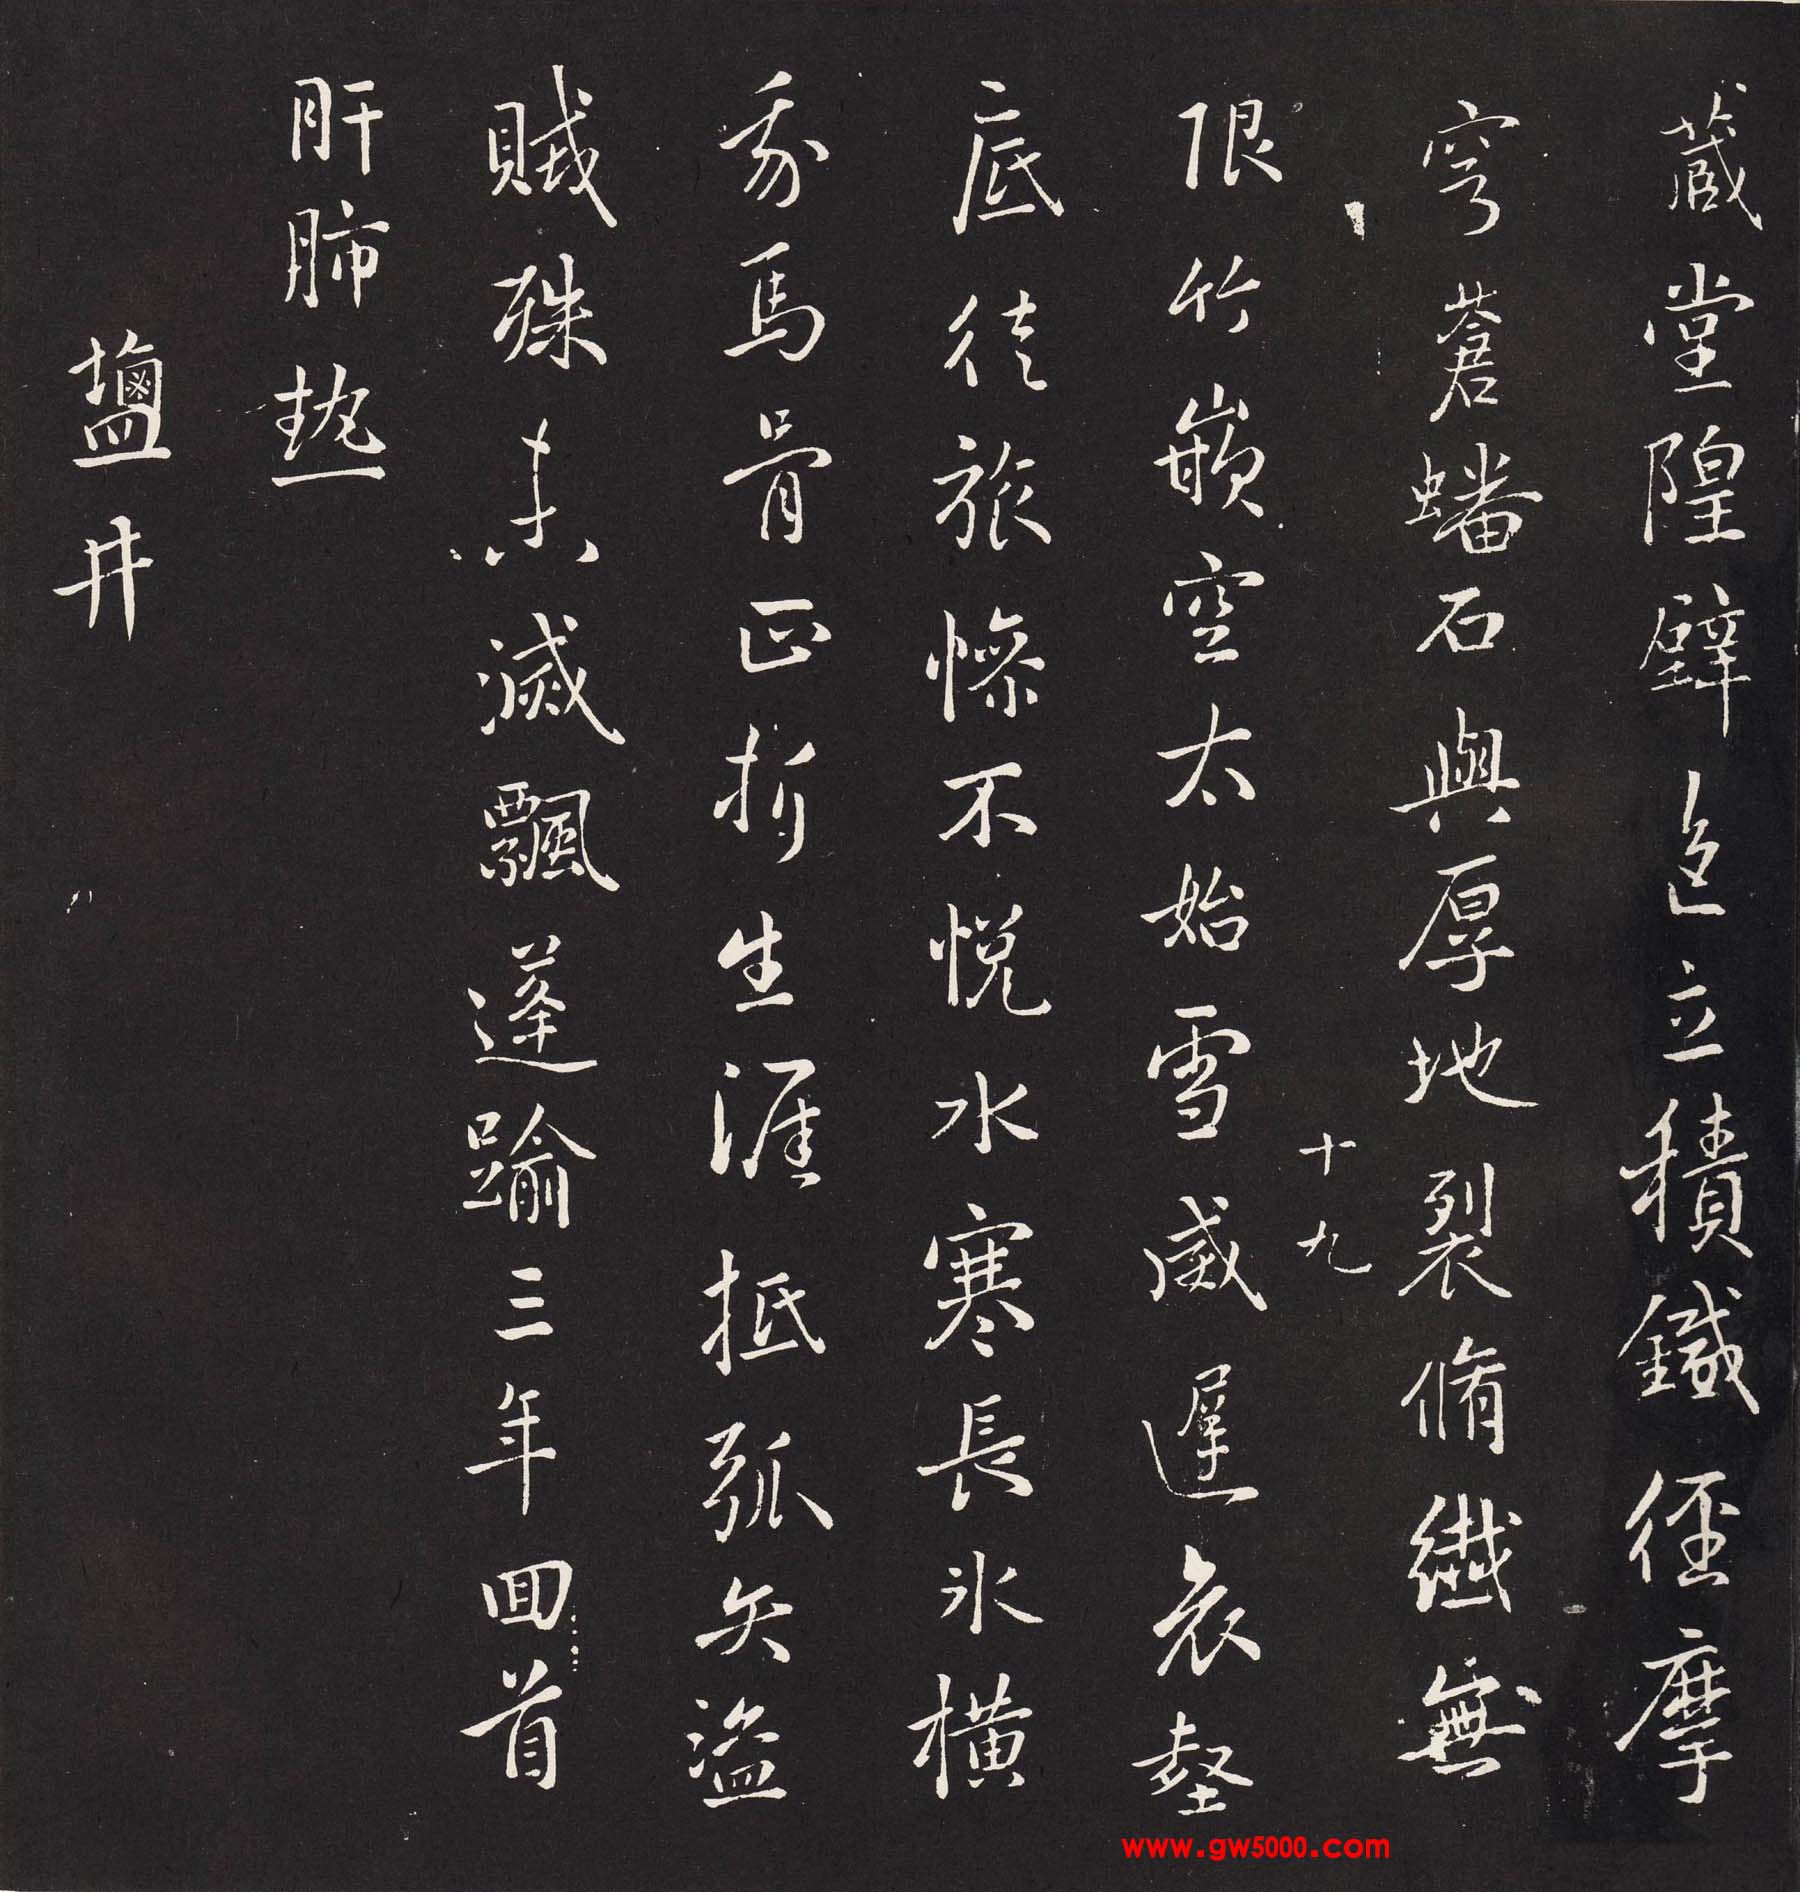 藏堂隍壁色立積鐵徑摩
穹蒼蟠石與厚地裂脩纖無
十九
限竹嵌空太始雪威遲哀壑
底徒旅慘不悅水寒長冰橫
我馬骨正折生涯抵弧矢盜
賊殊未滅飄蓬踰三年回首
肝肺熱
鹽井
www.gw5000.com